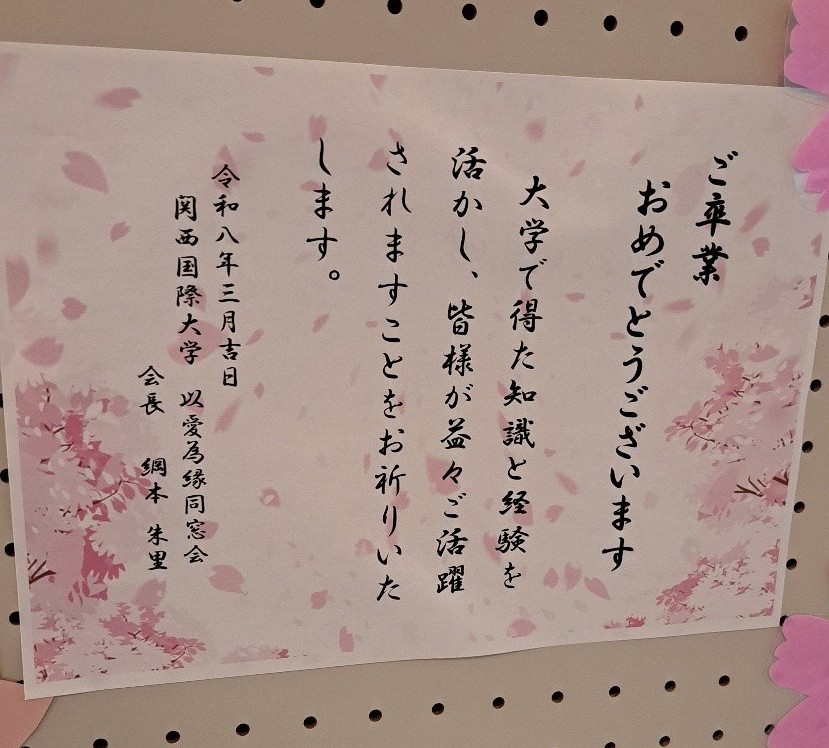 ご卒業
おめでとうございます
大学で得た知識と経験を
活かし、皆様が益々ご活躍
されますことをお祈りいた
します。
令和八年三月吉日
関西国際大学 以愛為縁同窓会
会長 綱本 朱里